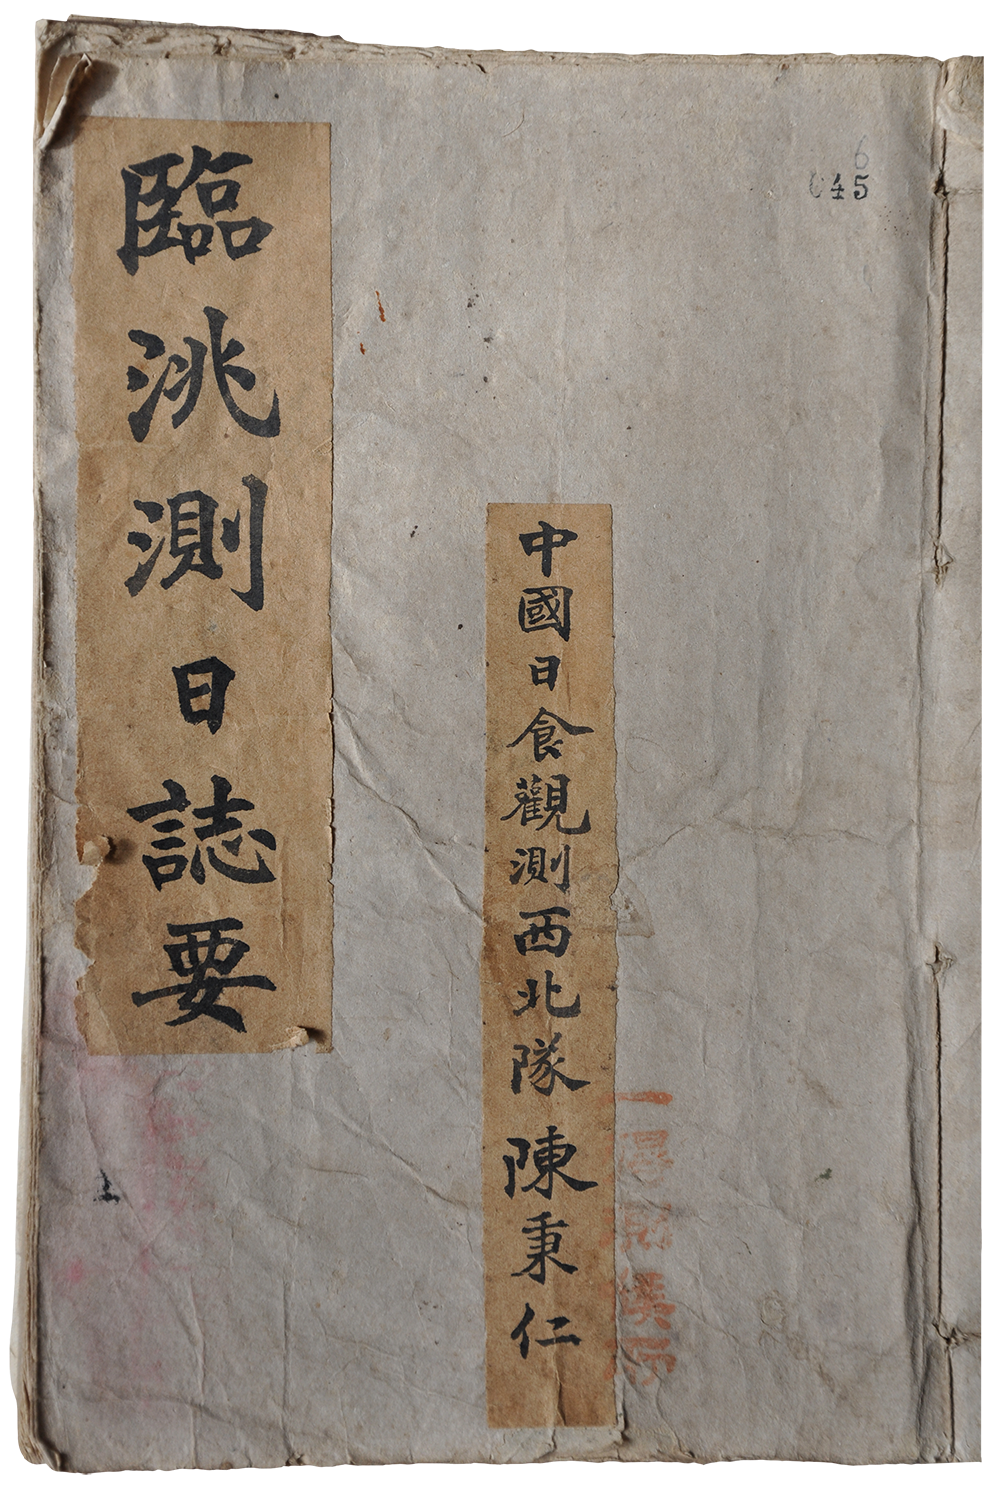 臨洮測日誌要
中國日食觀測西北隊 陳秉仁
6
45